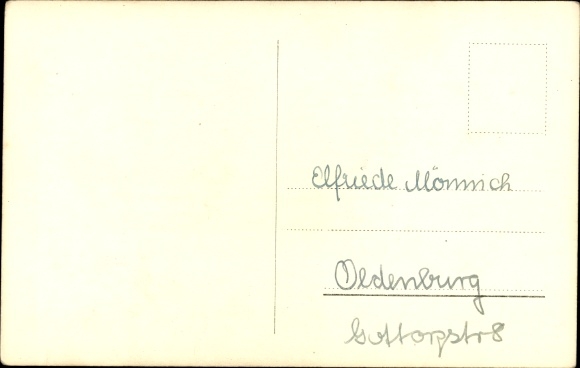 Elfriede Mönnich
Oldenburg
Gottorpstr 8